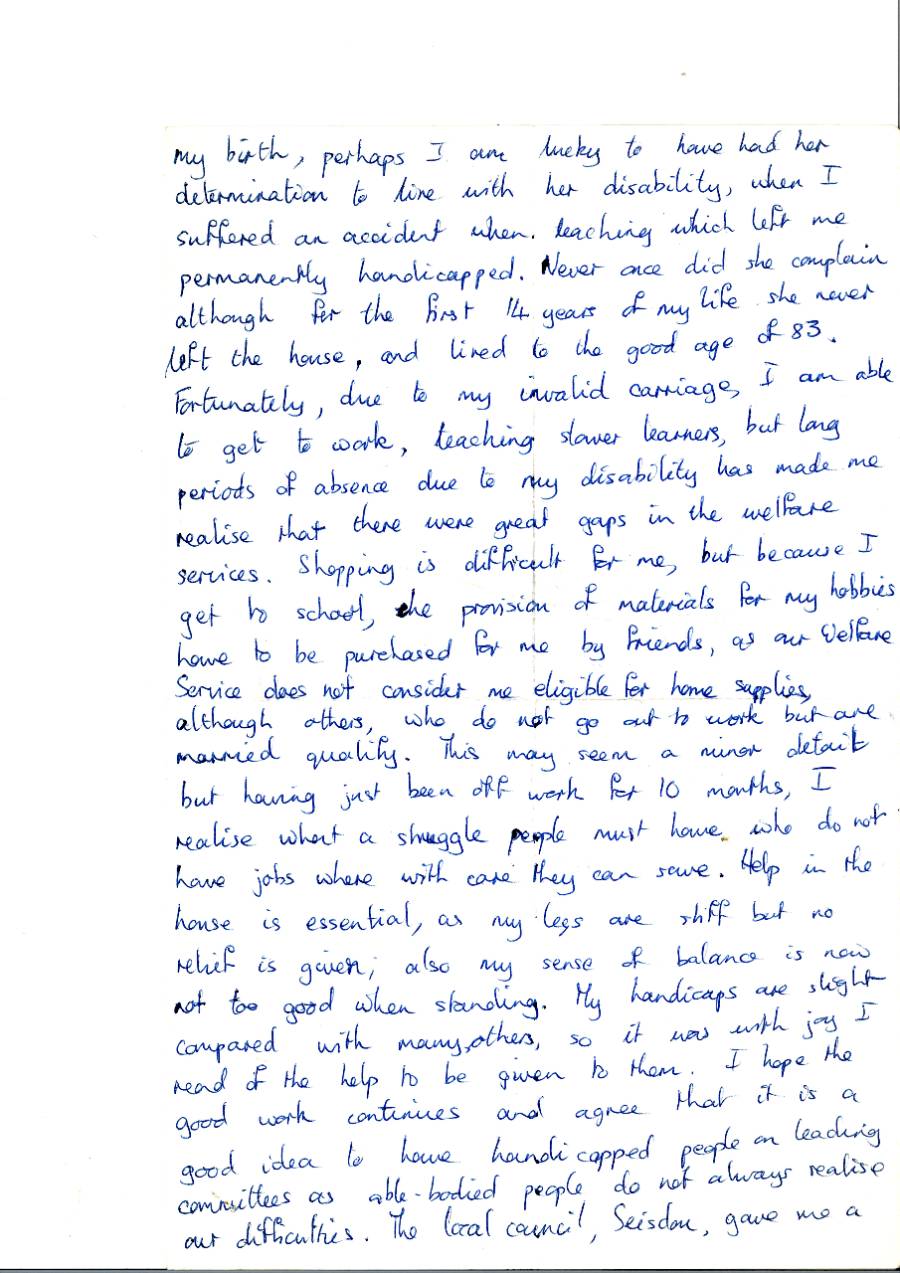 my birth, perhaps I am lucky to have had her
determination to live with her disability, when I
suffered an accident when. teaching which left me
permanently handicapped. Never once did she complain
although for the first 14 years of my life she never
left the house, and lived to the good age of 83.
Fortunately, due to my invalid carriage, I am able
to get to work, teaching slower learners, but long
periods of absence due to my disability has made me
realise that there were great gaps in the welfare
services. Shopping is difficult for me, but because I
get to school, the provision of materials for my hobbies
have to be purchased for me by friends, as our Welfare
Service does not consider me eligible for home supplies,
although others, who do not go out to work but are
married qualify. This may seem a minor detail
but having just been off work for 10 months, I
realise what a struggle people must have who do not
have jobs where with care they can save. Help in the
house is essential, as my legs are stiff but no
relief is given; also my sense of balance is now
not too good when standing. My handicaps are slight
compared with many, others, so it was with joy I
read of the help to be given to them. I hope the
good work continues and agree that it is a
good idea to have handicapped people on leading
committees as able-bodied people do not always realise
our difficulties. The local council, Seisdon, gave me a